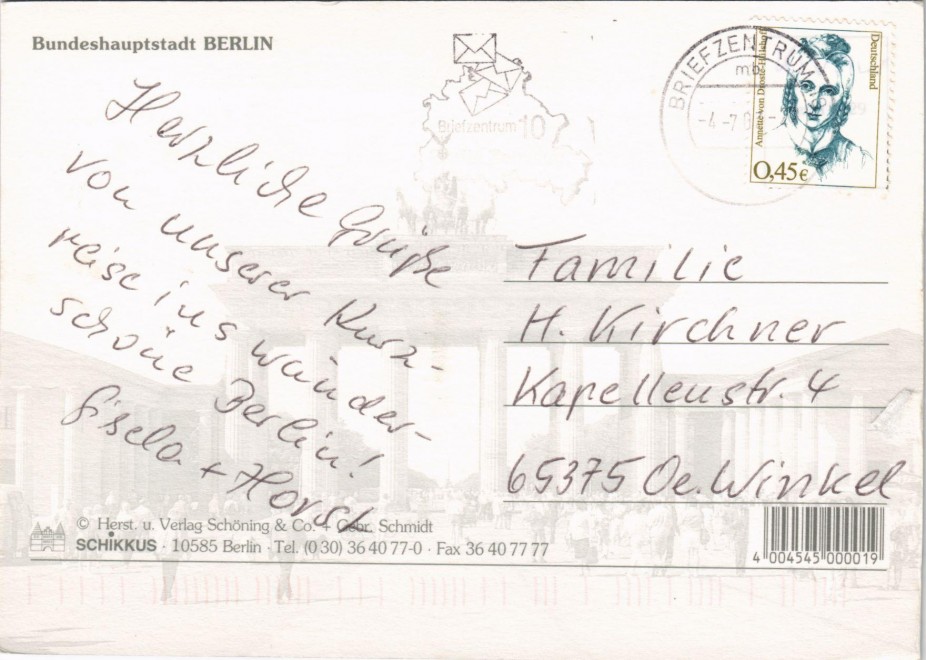 Bundeshauptstadt BERLIN
Herzliche Grüße
von unserer Kurz-
reise ins wunder-
schöne Berlin!
Gisela + Horst
Briefzentrum 10
BRIEFZENTRUM
mb
-4.-7.0
Deutschland
Annette von Droste-Hülshoff
0,45€
Familie
H. Kirchner
Kapellenstr. 4
65375 Oe. Winkel
© Herst. u. Verlag Schöning & Co. + Gebr. Schmidt
SCHIKKUS · 10585 Berlin · Tel. (0 30) 36 40 77-0 · Fax 36 40 77 77
4 004545 000019